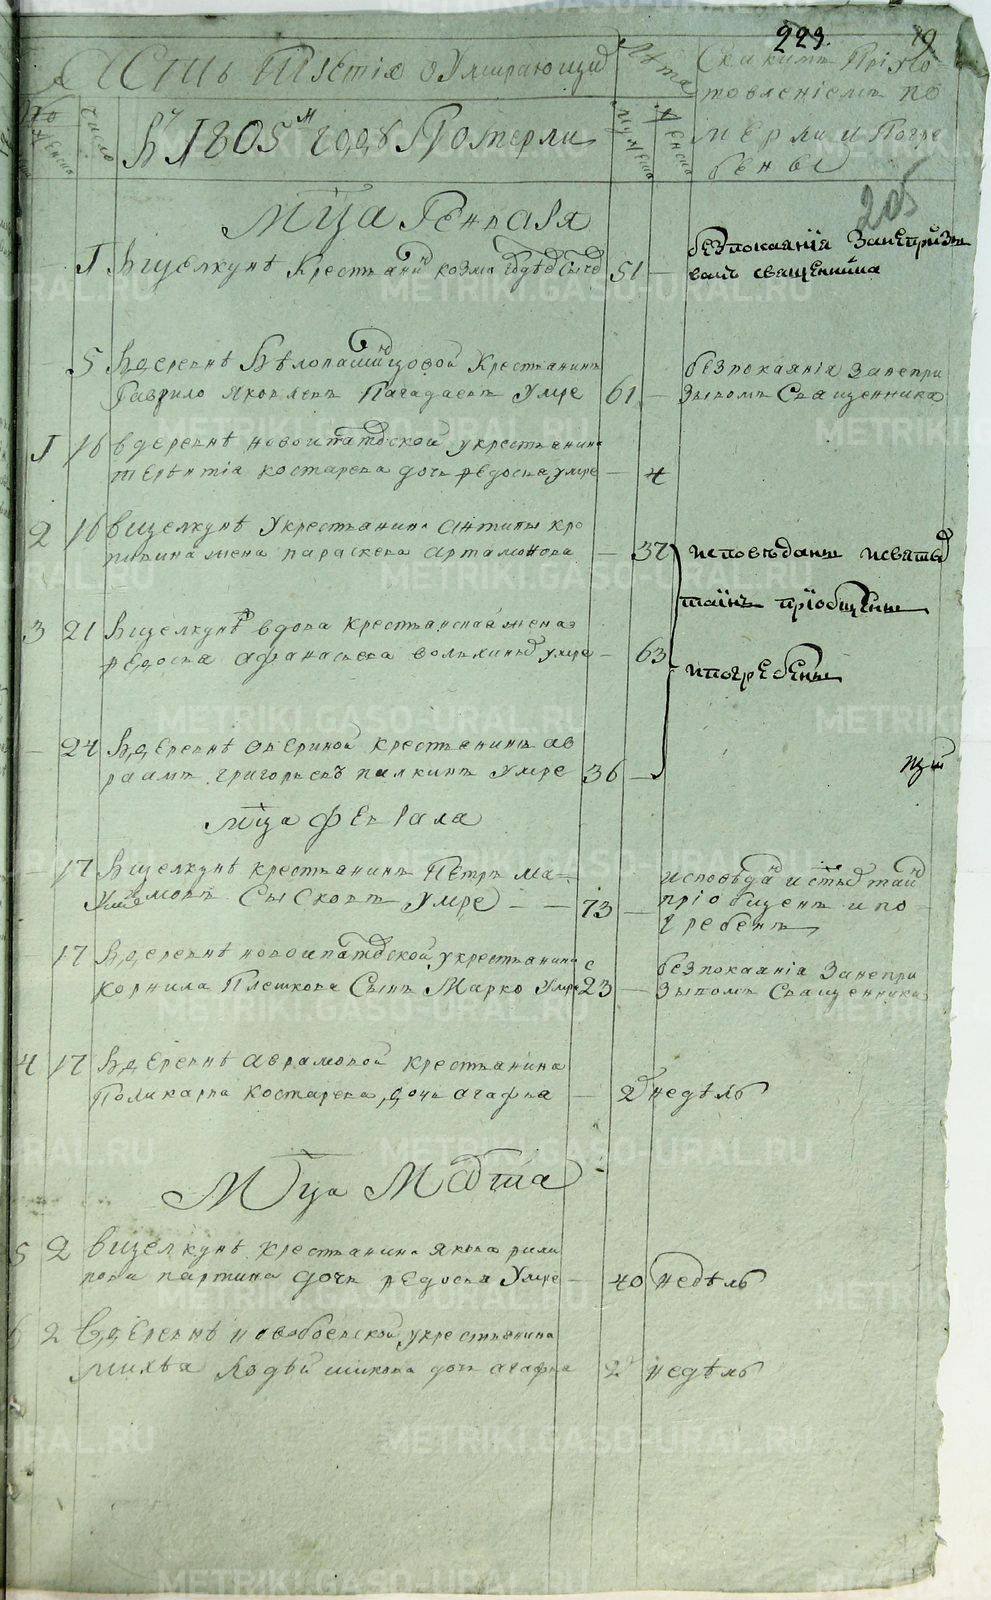 223.
Часть Третія о Умирающихъ
лѣта
Скакимъ Пріуго
товленіемъ по
мерли и Погре
бены
число
Въ 1805м годѣ Померли
мужеска
женска
205
Мца Генваря
1 Вщелкунѣ Крестьянинъ козма 51
безпокаянія Занепризы
вомъ священника
5 Вдеревнѣ Бѣлопашинцовой Крестьянинъ
Гаврило Яковлевъ Пагадаевъ Умре 61
безпокаянія Занепри
зывомъ Священника
1 16 вдеревнѣ новоипатовской укрестьянина
терентіа костарева дочь ѳедосья умре 4
2 16 вщелкунѣ Укрестьянина антипы кро
пивина жена параскева артамонова 37
исповѣданы исвятыхъ
таинъ пріобщены
ипогребены
3 21 Вщелкунѣ вдова крестьянская жена
ѳедосья афанасьева умре 63
24 Вдеревнѣ авериной крестьянинъ ав
раамъ григорьевъ палкинъ умре 36
Мца февраля
17 Вщелкунѣ крестьянинъ Петръ ма
ѯимовъ Сысковъ Умре 73
исповѣданъ и стыхъ таинъ
пріобщенъ и по
гребенъ
17 Вдеревнѣ новоипатовской укрестьянина
корнила Плешкова Сынъ Марко Умре 23
безпокаянія Занепри
зывомъ Священника
4 17 Вдеревнѣ аврамовой крестьянина
Поликарпа Костарева дочь агафья 2 недѣль
Мца Марта
5 2 вщелкунѣ крестьянина якова фили
пова партина дочь ѳедосья Умре 40 недѣль
6 2 Вдеревнѣ укрестьянина
михѣа дочь агафья 2 недѣль
METRIKI.GASO-URAL.RU